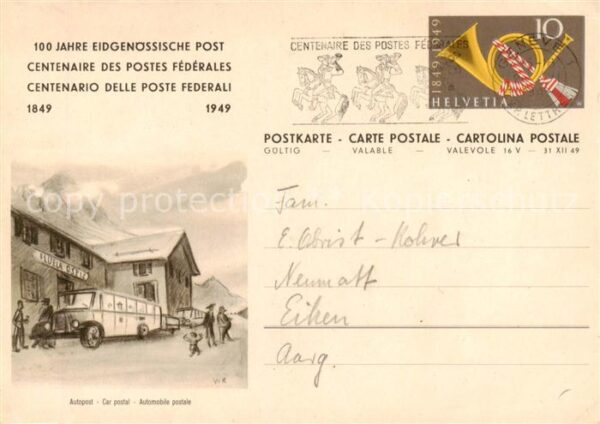 100 JAHRE EIDGENÖSSISCHE POST
CENTENAIRE DES POSTES FÉDÉRALES
CENTENARIO DELLE POSTE FEDERALI
1849 1949
CENTENAIRE DES POSTES FÉDÉRALES
GENEVE
LETTR
10
1849 1949
HELVETIA
POSTKARTE - CARTE POSTALE - CARTOLINA POSTALE
GÜLTIG — VALABLE — VALEVOLE 16 V — 31 XII 49
copy protection by Ansichtskartenversand
FLUELA OSPIZ
Fam.
E. Obrist-Kohler
Neumatt
Eiken
Aarg.
Autopost - Car postal - Automobile postale